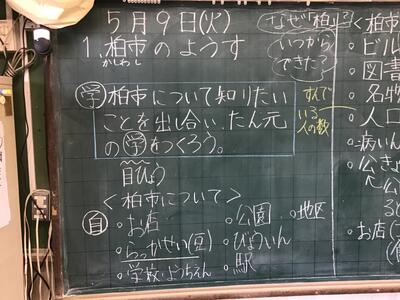 5月9日(火)
なぜ「柏」?
1.柏市のようす
かしわし
いつから
できた?
学 柏市について知りたい
ことを出し合い、たん元
の学をつくろう。
目ひょう
すんで
いる
人の数
<柏市について>
自
・お店
・公園
・地区
・らっかせい(豆)
・びょういん
・学校・ようちえん
・駅
<柏市
・ビル
・図書
・名物
・人口
・病いん
・公きょ
・お店(